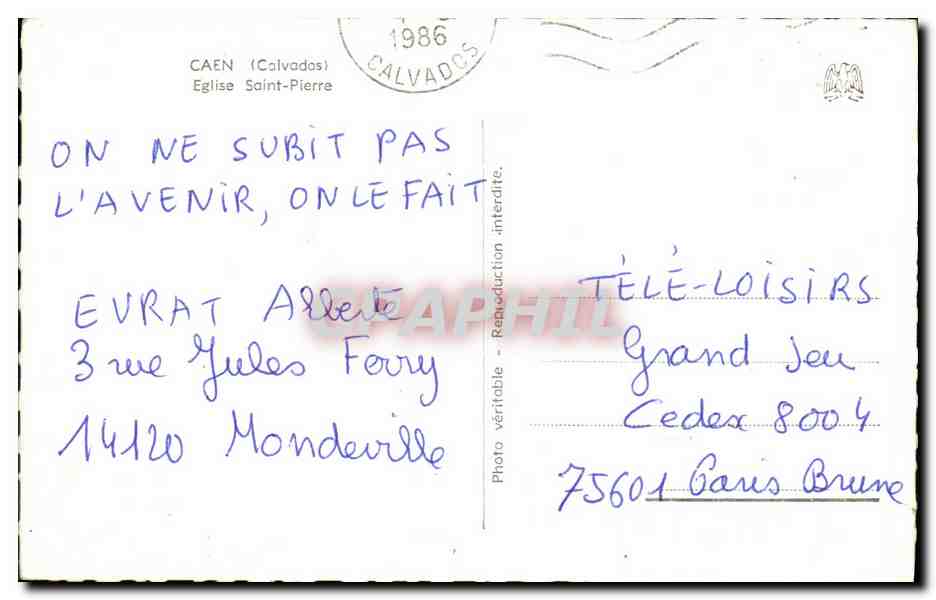 1986
CALVADOS
CAEN (Calvados)
Eglise Saint-Pierre
ON NE SUBIT PAS
L'AVENIR, ON LE FAIT
EVRAT Alberte
3 rue Jules Ferry
14120 Mondeville
Photo véritable - Reproduction interdite.
TÉLÉ-LOISIRS
Grand Jeu
Cedex 8004
75601 Paris Brune
CPAPHIL